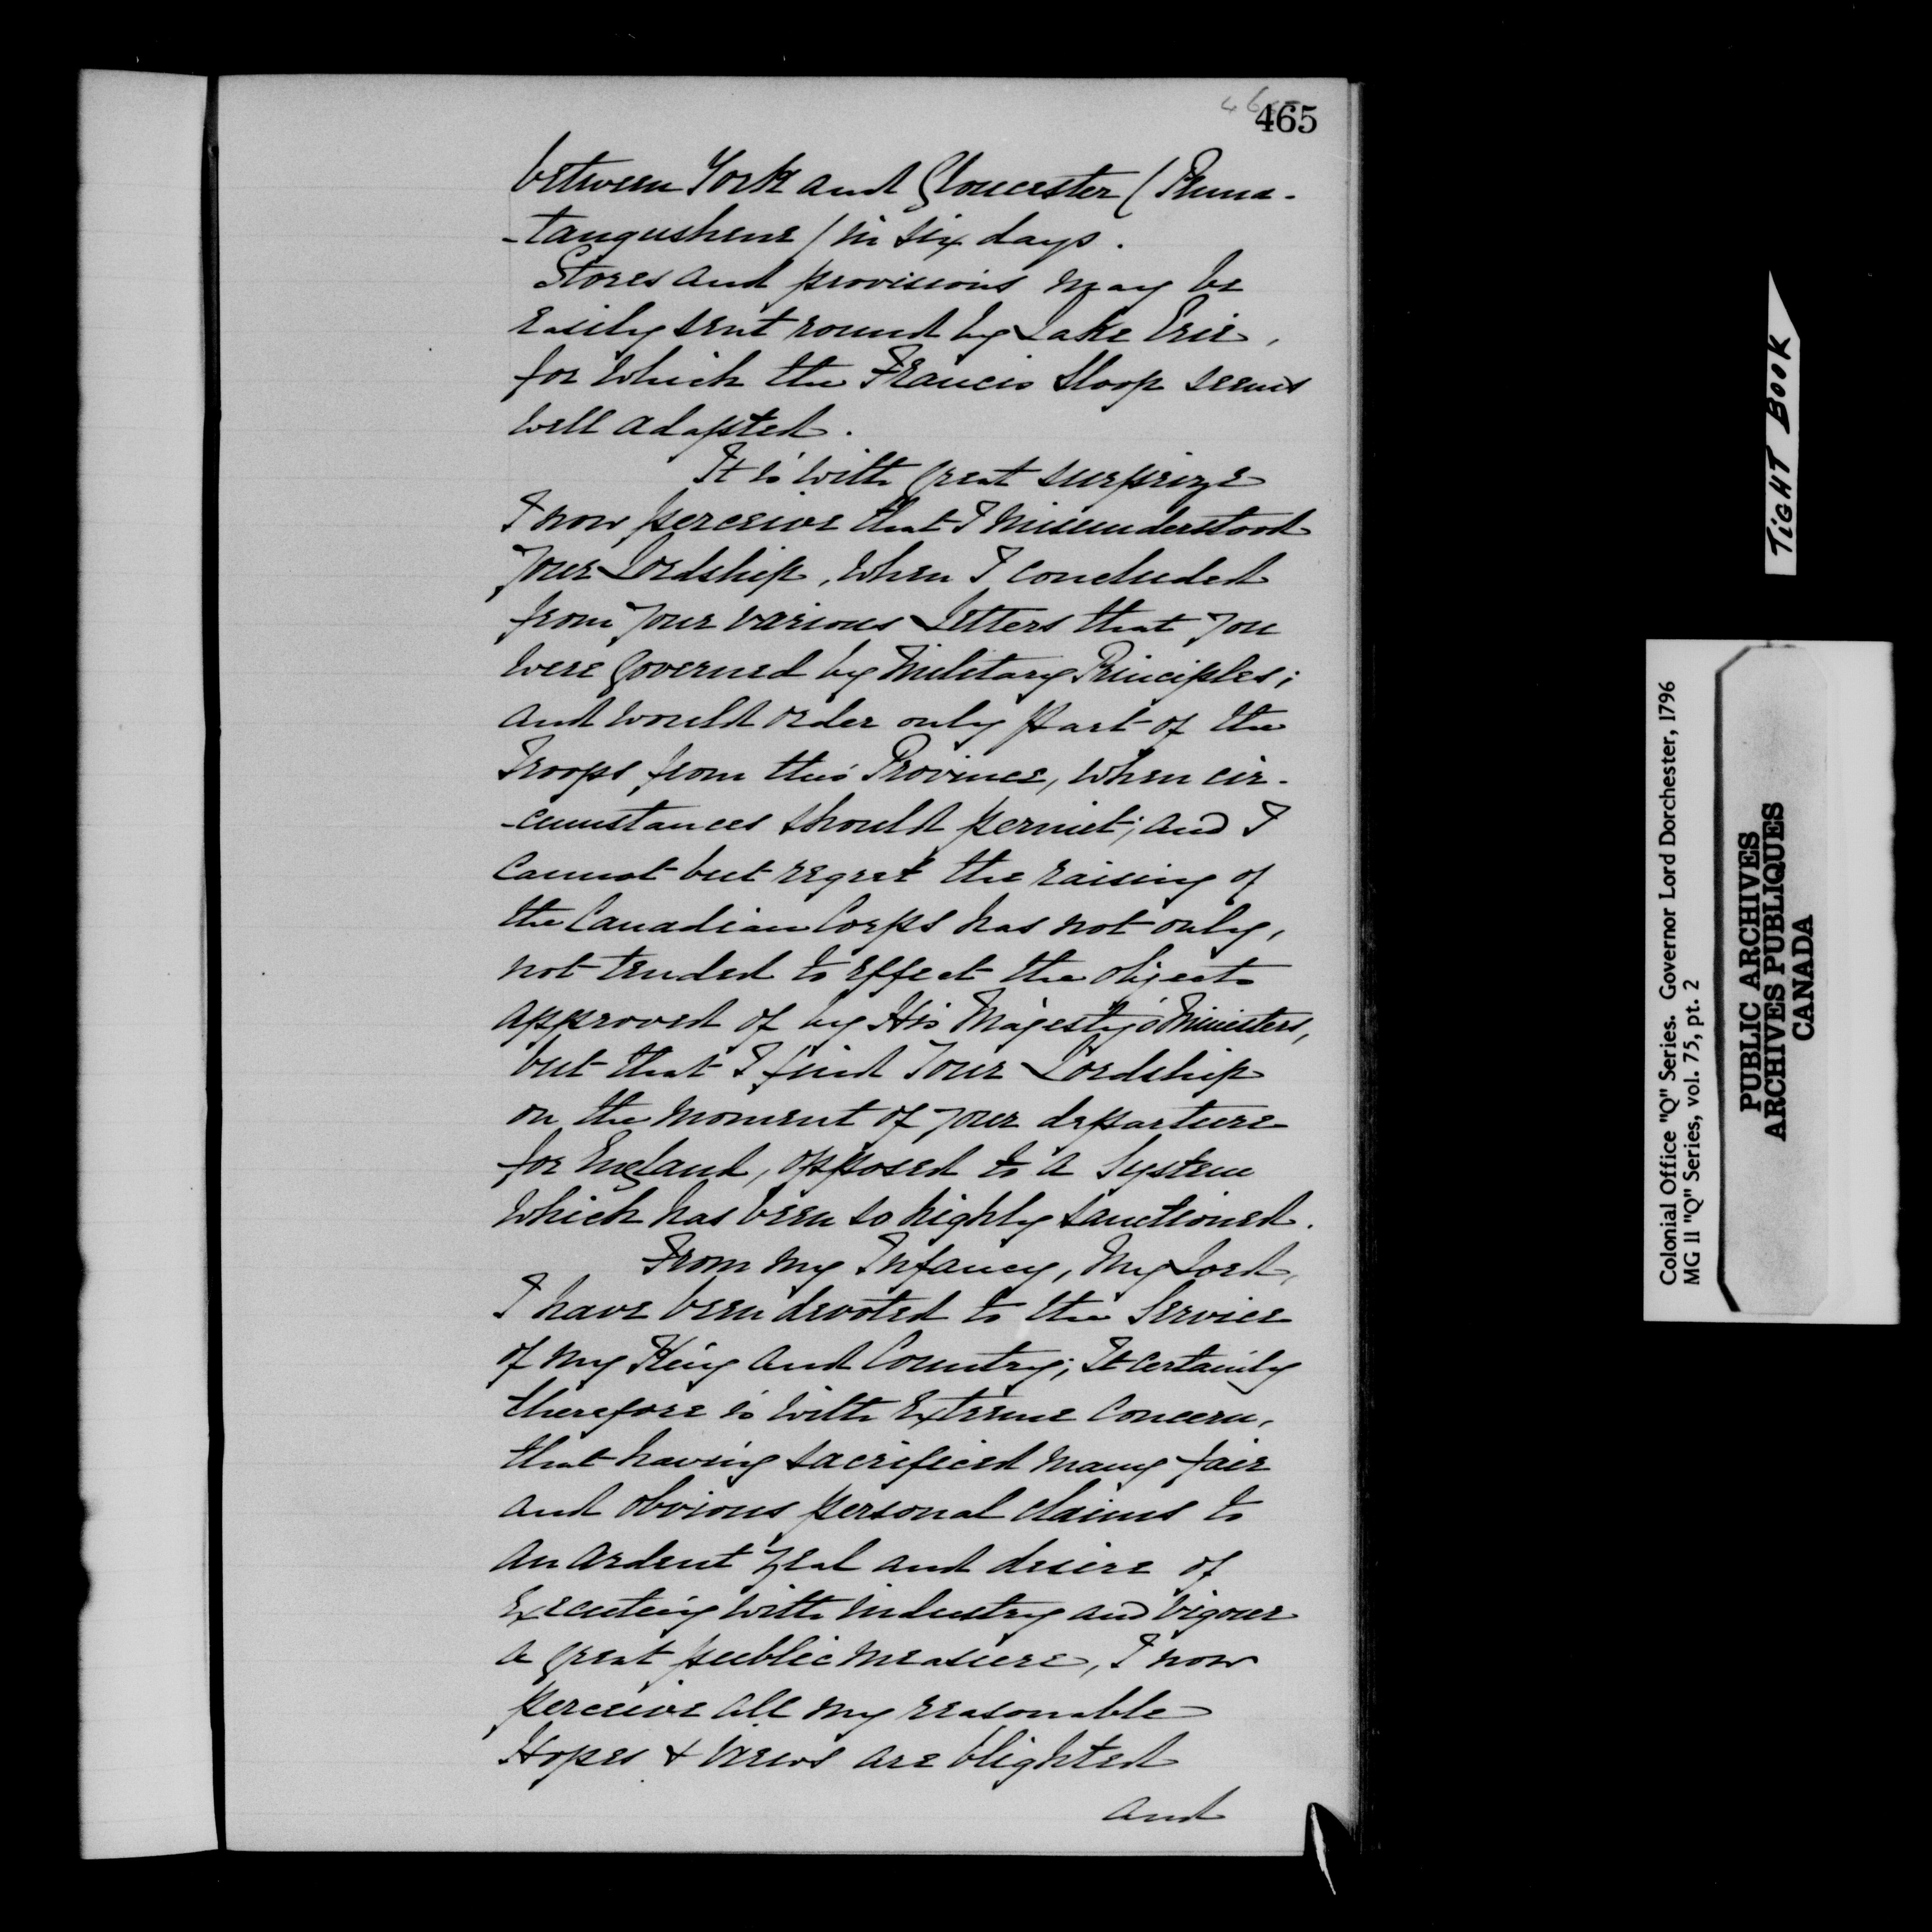 465
465
between York and Gloucester (Penna-
-tangushene) in six days.
Stores and provisions may be
easily sent round by Lake Erie,
for which the Francis Sloop seems
well adapted.
It is with great surprize
I now perceive that I misunderstood
Your Lordship, when I concluded
from your various Letters that you
were governed by Military Principles;
and would order only part of the
Troops from this Province, when cir-
-cumstances should permit; and I
cannot but regret the raising of
the Canadian Corps has not only,
not tended to effect the objects
approved of by His Majesty's Ministers,
but that I find Your Lordship
on the moment of your departure
for England, opposed to a System
which has been so highly sanctioned.
From my Infancy, My Lord,
I have been devoted to the Service
of my King and Country; It certainly
therefore is with extreme concern,
that having sacrificed many fair
and obvious personal claims to
an ardent zeal and desire of
executing with industry and vigour
a great public measure, I now
perceive all my reasonable
Hopes & views are blighted
and
TIGHT BOOK
Colonial Office "Q" Series. Governor Lord Dorchester, 1796
MG 11 "Q" Series, vol. 75, pt. 2
PUBLIC ARCHIVES
ARCHIVES PUBLIQUES
CANADA